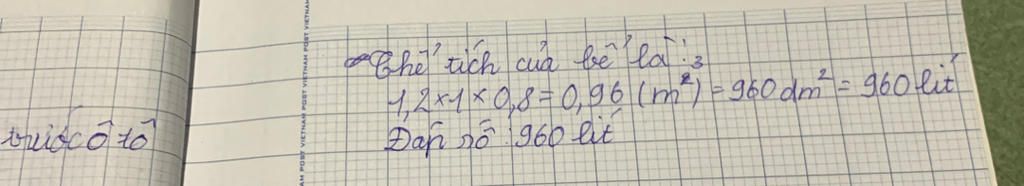 Thể tích của bể là:
1,2 x 1 x 0,8 = 0,96 (m³) = 960 dm² = 960 lít
Đáp số: 960 lít
trước ô tô
VIETNAM POST VIETNAM POST VIETNAM